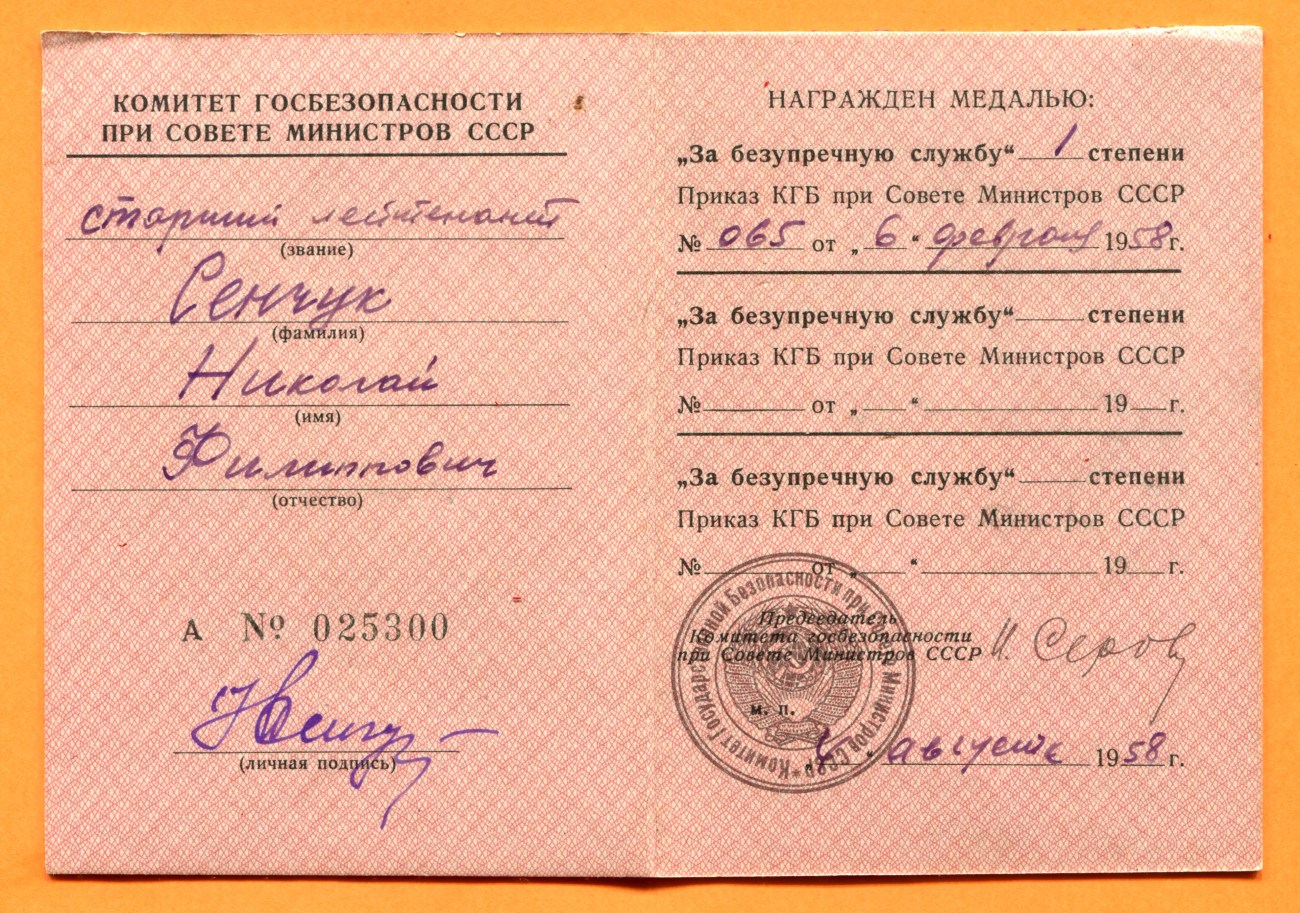 КОМИТЕТ ГОСБЕЗОПАСНОСТИ
ПРИ СОВЕТЕ МИНИСТРОВ СССР
старший лейтенант
(звание)
Сенчук
(фамилия)
Николай
(имя)
Филиппович
(отчество)
А № 025300
(личная подпись)
НАГРАЖДЕН МЕДАЛЬЮ:
„За безупречную службу“ 1 степени
Приказ КГБ при Совете Министров СССР
№ 065 от „6“ февраля 1958 г.
„За безупречную службу“ степени
Приказ КГБ при Совете Министров СССР
№ от „ “ 19 г.
„За безупречную службу“ степени
Приказ КГБ при Совете Министров СССР
№ от „ “ 19 г.
Председатель
Комитета госбезопасности
при Совете Министров СССР И. Серов
м. п.
августа 1958 г.
Комитет Государственной Безопасности при Совете Министров СССР